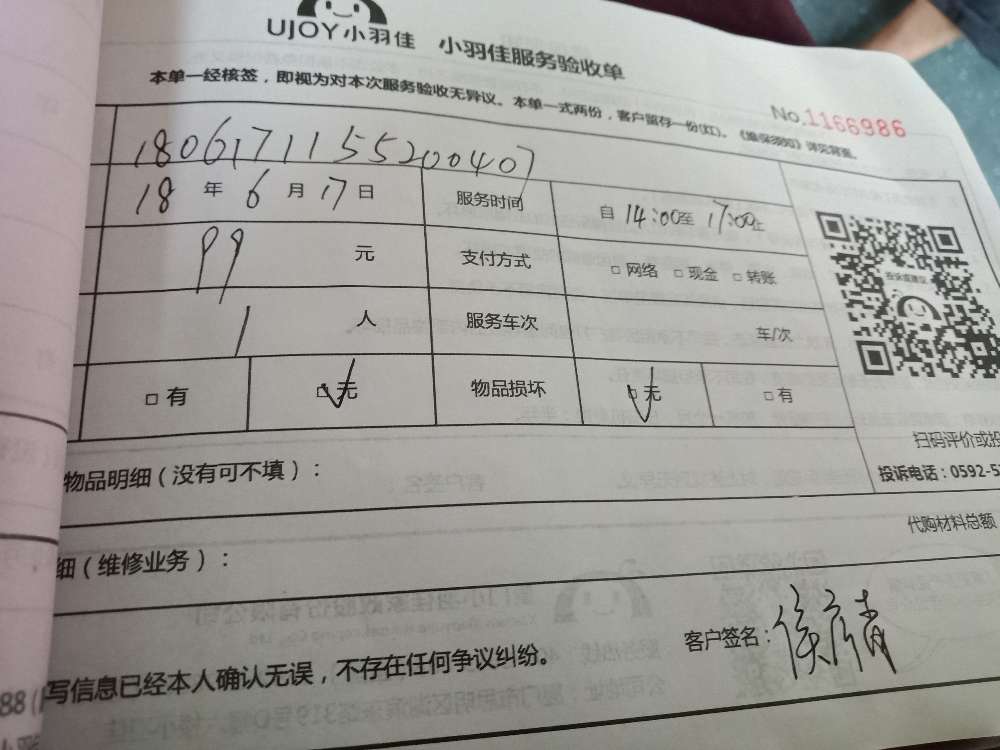 UJOY小羽佳 小羽佳服务验收单
本单一经核签，即视为对本次服务验收无异议。本单一式两份，客户留存一份(红)。《维保须知》详见背面。
No.1166986
1806171155200407
18 年 6 月 17 日 服务时间 自 14:00至 17:00止
99 元 支付方式 □ 网络 □ 现金 □ 转账
1 人 服务车次 车/次
□ 有 □ 无 物品损坏 □ 无 □ 有
投诉或建议
扫码评价或投
投诉电话：0592-5
物品明细（没有可不填）：
代购材料总额
细（维修业务）：
客户签名：
写信息已经本人确认无误，不存在任何争议纠纷。
88